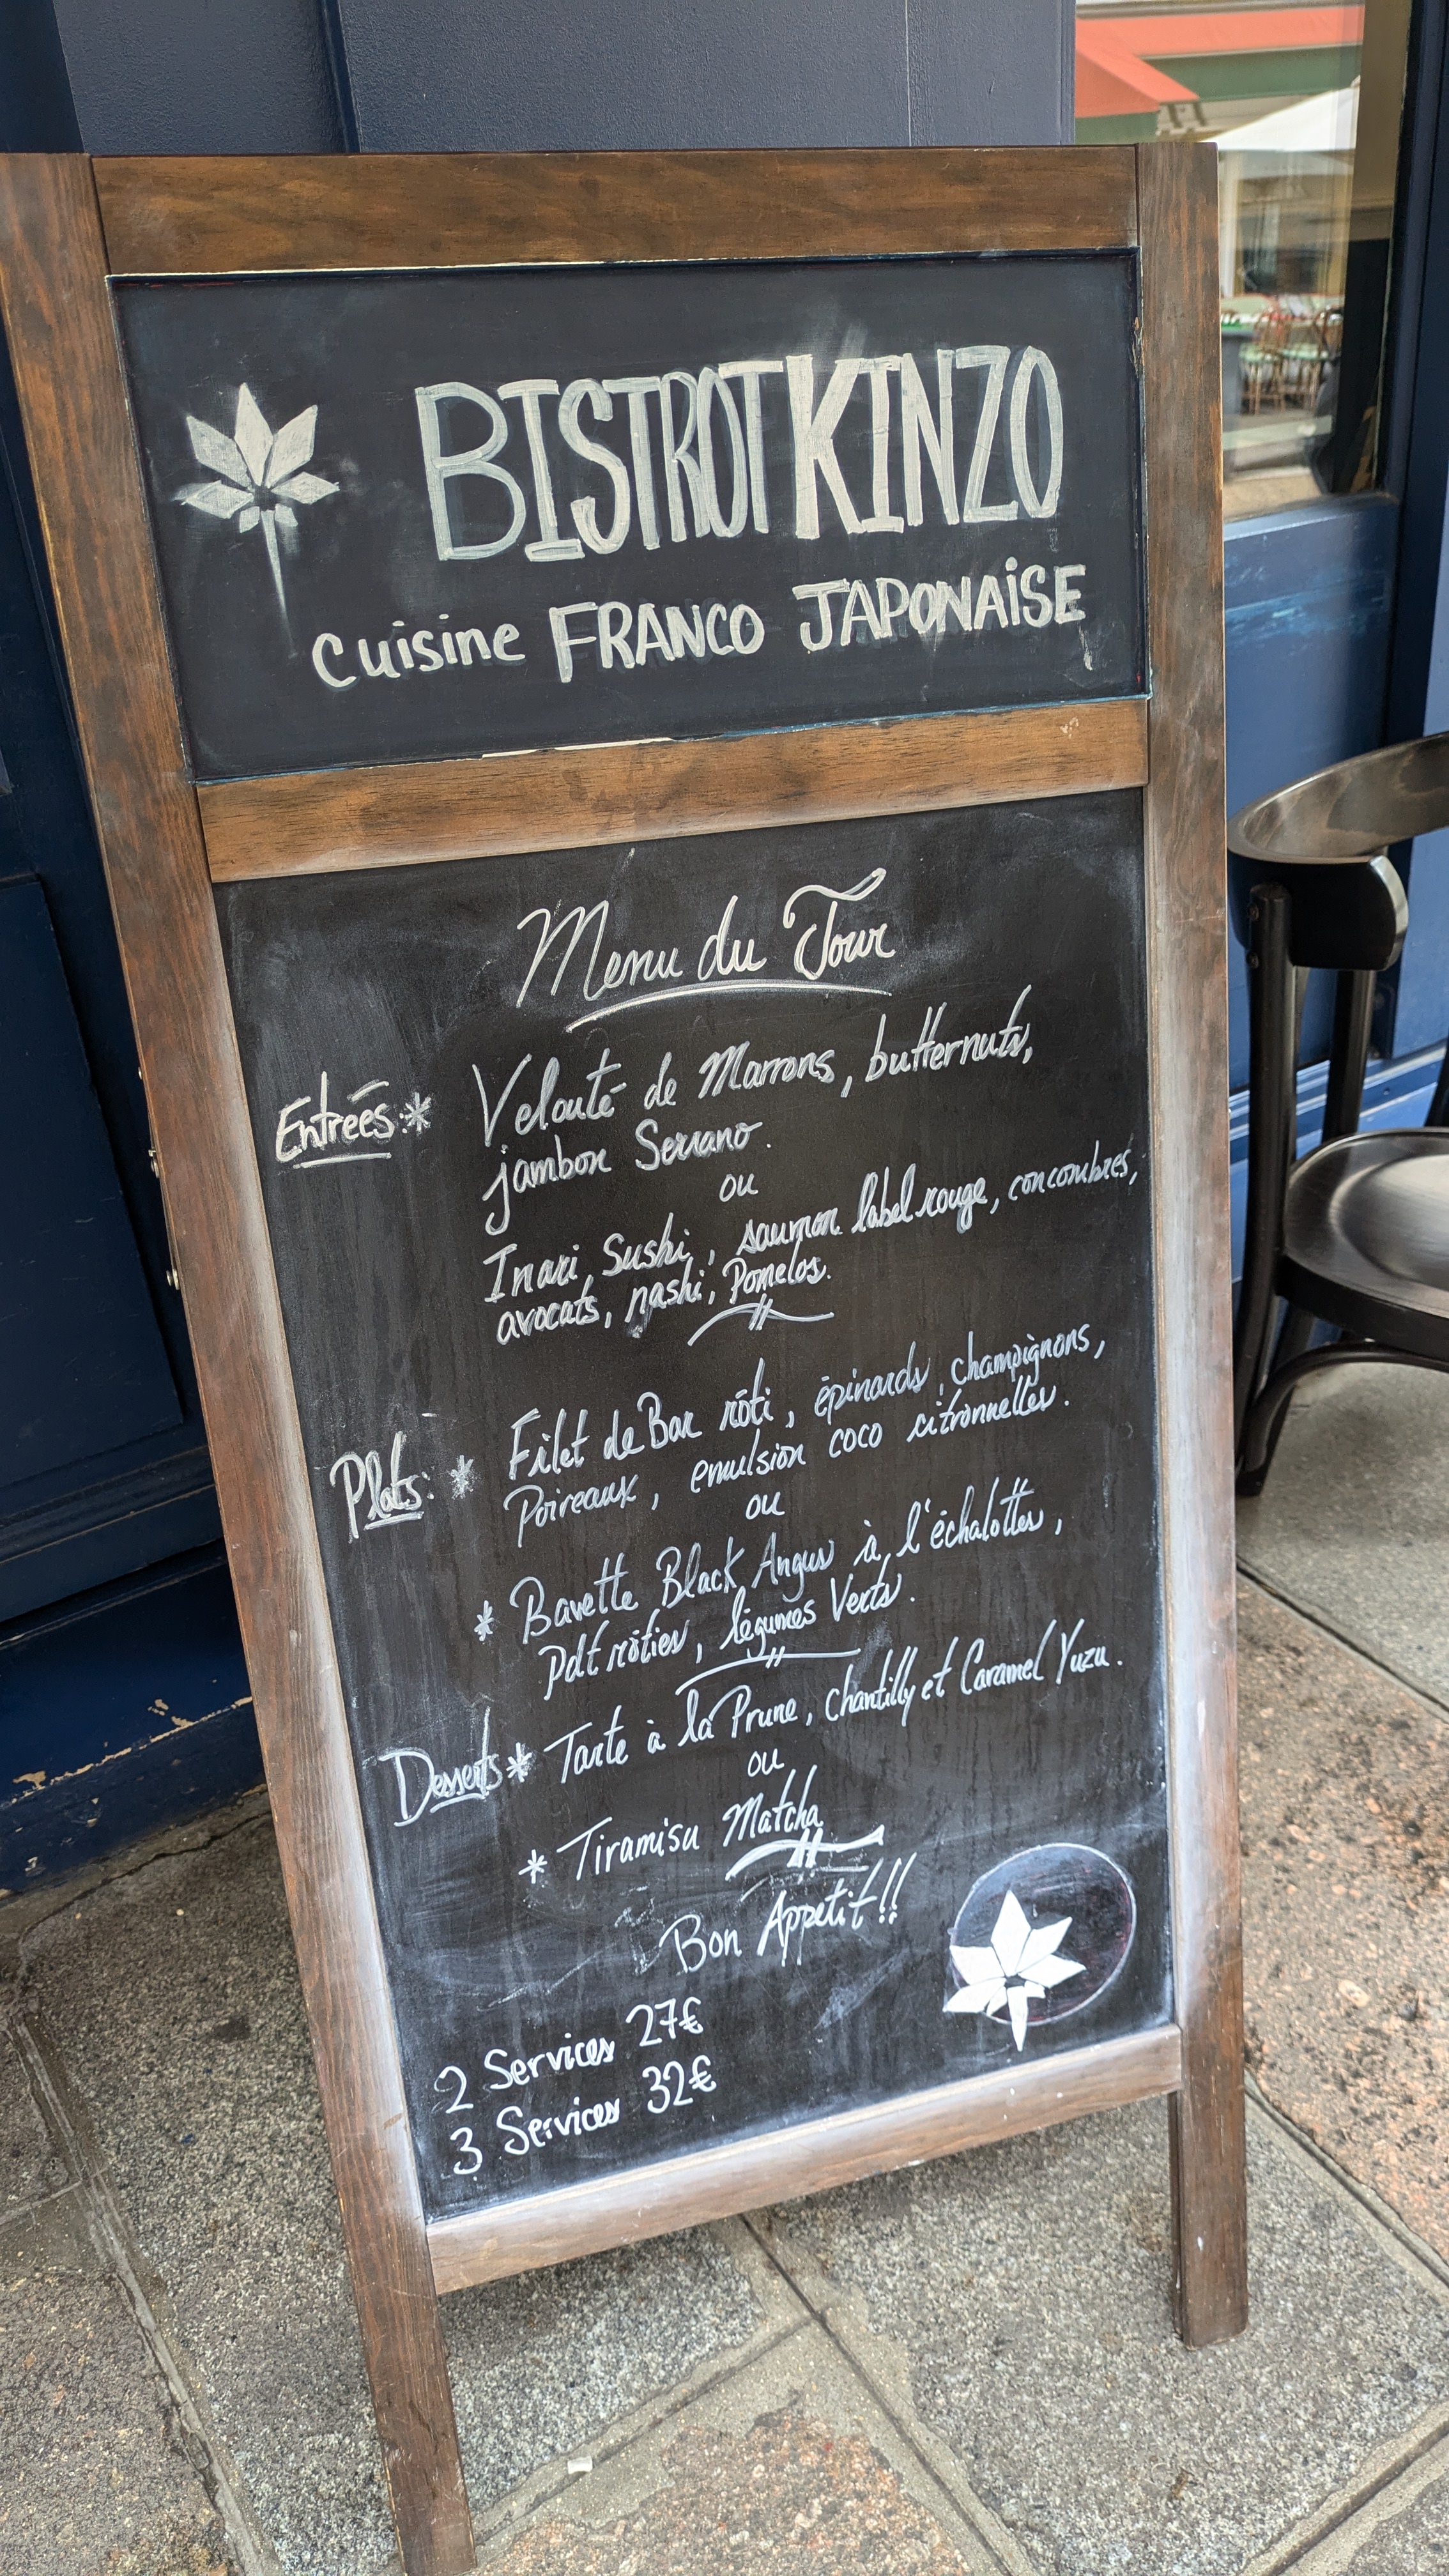 BISTROT KINZO
cuisine FRANCO JAPONAISE
Menu du Jour
Entrées:* Velouté de Marrons, butternuts,
jambon Serrano.
ou
Inari Sushi, saumon label rouge, concombres,
avocats, nashi, Pomelos.
Plats: * Filet de Bar rôti, épinards, champignons,
Poireaux, emulsion coco citronnelles.
ou
* Bavette Black Angus à l'échalottes,
Pdt rôties, légumes Verts.
Desserts * Tarte à la Prune, chantilly et Caramel Yuzu.
ou
* Tiramisu Matcha
Bon Appetit!!
2 Services 27€
3 Services 32€